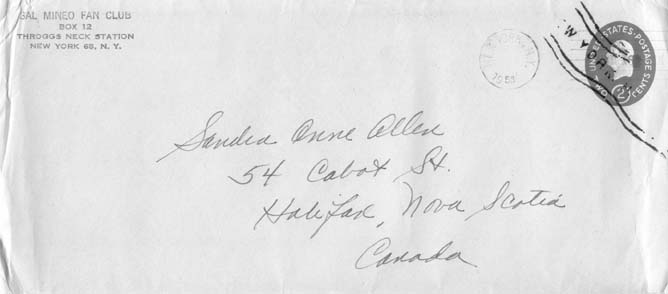 SAL MINEO FAN CLUB
BOX 12
THROGGS NECK STATION
NEW YORK 65, N. Y.
UNITED STATES POSTAGE
TWO 2 CENTS
Sandra Anne Allen
54 Cabot St.
Halifax, Nova Scotia
Canada